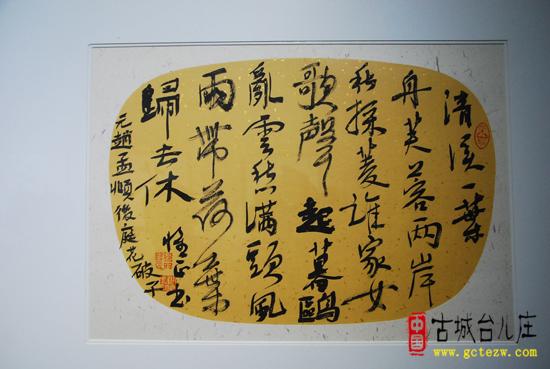 清溪一葉
舟芙容两岸
秋採菱誰家女
歌聲起暮鷗
亂雲愁滿頭風
雨帶荷葉
歸去休
元趙孟頫後庭花破子
中国
古城台儿庄
www.gctezw.com